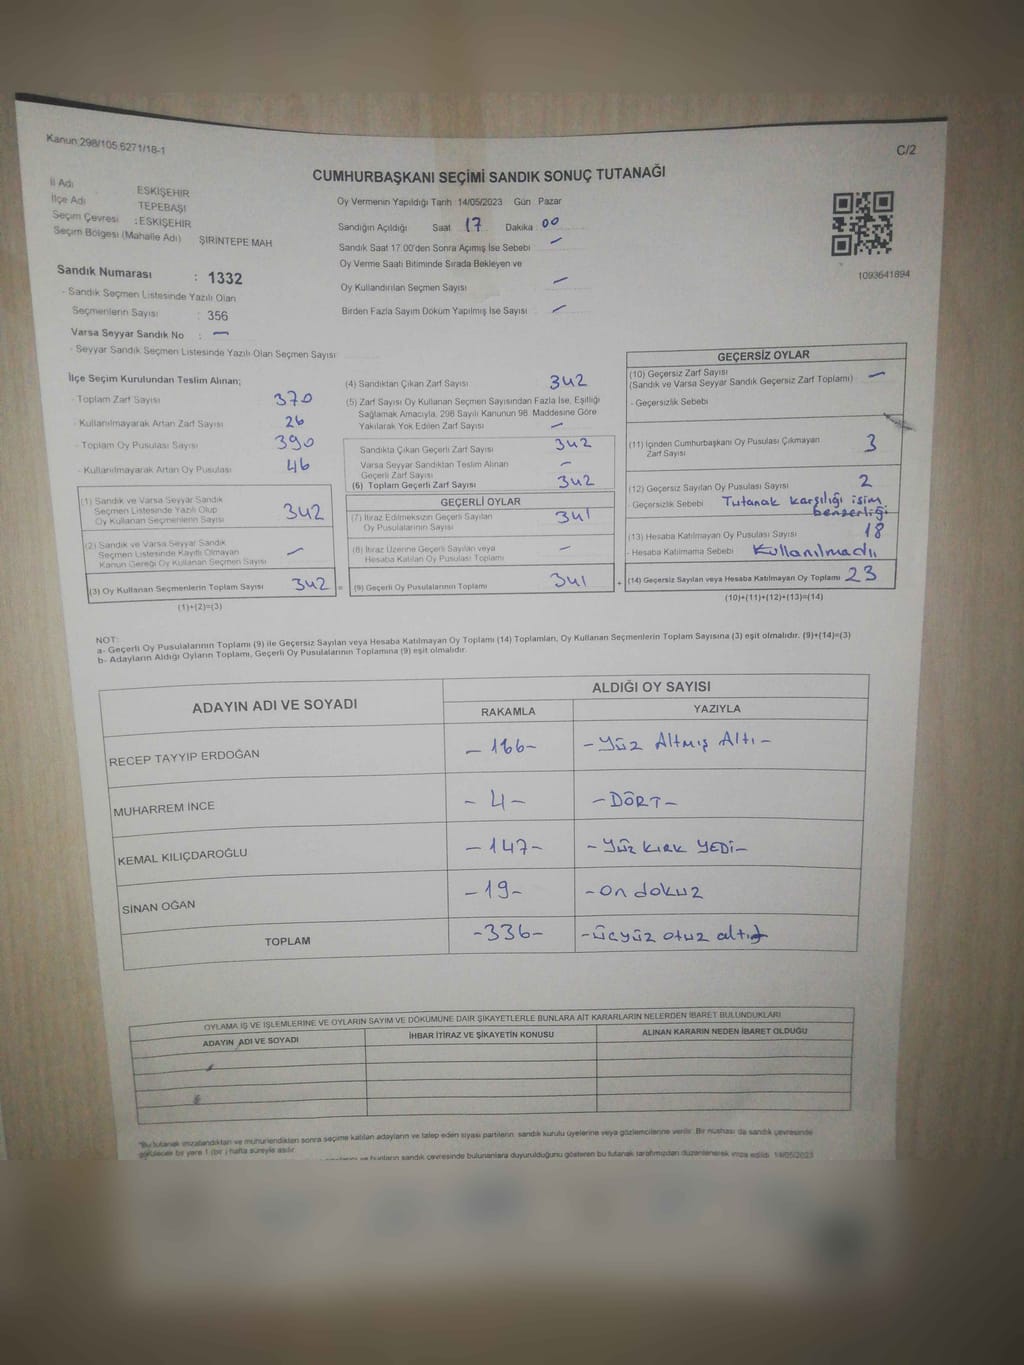 Kanun:298/105.6271/18-1
C/2
CUMHURBAŞKANI SEÇİMİ SANDIK SONUÇ TUTANAĞI
İl Adı ESKİŞEHİR
İlçe Adı TEPEBAŞI
Seçim Çevresi : ESKİŞEHİR
Seçim Bölgesi (Mahalle Adı) ŞİRİNTEPE MAH
Oy Vermenin Yapıldığı Tarih 14/05/2023 Gün Pazar
Sandığın Açıldığı Saat 17 Dakika 00
Sandık Saat 17:00'den Sonra Açımış İse Sebebi —
Oy Verme Saati Bitiminde Sırada Bekleyen ve
Oy Kullandırılan Seçmen Sayısı —
Birden Fazla Sayım Döküm Yapılmış İse Sayısı —
1093641894
Sandık Numarası : 1332
- Sandık Seçmen Listesinde Yazılı Olan
Seçmenlerin Sayısı : 356
Varsa Seyyar Sandık No : —
- Seyyar Sandık Seçmen Listesinde Yazılı Olan Seçmen Sayısı
İlçe Seçim Kurulundan Teslim Alınan;
- Toplam Zarf Sayısı 370
- Kullanılmayarak Artan Zarf Sayısı 26
- Toplam Oy Pusulası Sayısı 390
- Kullanılmayarak Artan Oy Pusulası 46
(1) Sandık ve Varsa Seyyar Sandık
Seçmen Listesinde Yazılı Olup
Oy Kullanan Seçmenlerin Sayısı 342
(2) Sandık ve Varsa Seyyar Sandık
Seçmen Listesinde Kayıtlı Olmayan
Kanun Gereği Oy Kullanan Seçmen Sayısı —
(3) Oy Kullanan Seçmenlerin Toplam Sayısı 342 =
(1)+(2)=(3)
(4) Sandıktan Çıkan Zarf Sayısı 342
(5) Zarf Sayısı Oy Kullanan Seçmen Sayısından Fazla İse, Eşitliği
Sağlamak Amacıyla, 298 Sayılı Kanunun 98. Maddesine Göre
Yakılarak Yok Edilen Zarf Sayısı —
Sandıkta Çıkan Geçerli Zarf Sayısı 342
Varsa Seyyar Sandıktan Teslim Alınan
Geçerli Zarf Sayısı —
(6) Toplam Geçerli Zarf Sayısı 342
GEÇERLİ OYLAR
(7) İtiraz Edilmeksizin Geçerli Sayılan
Oy Pusulalarının Sayısı 341
(8) İtiraz Üzerine Geçerli Sayılan veya
Hesaba Katılan Oy Pusulası Toplamı —
(9) Geçerli Oy Pusulalarının Toplamı 341 +
GEÇERSİZ OYLAR
(10) Geçersiz Zarf Sayısı
(Sandık ve Varsa Seyyar Sandık Geçersiz Zarf Toplamı) —
- Geçersizlik Sebebi
(11) İçinden Cumhurbaşkanı Oy Pusulası Çıkmayan
Zarf Sayısı 3
(12) Geçersiz Sayılan Oy Pusulası Sayısı 2
- Geçersizlik Sebebi Tutanak karşılığı isim
benzerliği
(13) Hesaba Katılmayan Oy Pusulası Sayısı 18
- Hesaba Katılmama Sebebi Kullanılmadı
(14) Geçersiz Sayılan veya Hesaba Katılmayan Oy Toplamı 23
(10)+(11)+(12)+(13)=(14)
NOT:
a- Geçerli Oy Pusulalarının Toplamı (9) ile Geçersiz Sayılan veya Hesaba Katılmayan Oy Toplamı (14) Toplamları, Oy Kullanan Seçmenlerin Toplam Sayısına (3) eşit olmalıdır. (9)+(14)=(3)
b- Adayların Aldığı Oyların Toplamı, Geçerli Oy Pusulalarının Toplamına (9) eşit olmalıdır.
ADAYIN ADI VE SOYADI
ALDIĞI OY SAYISI
RAKAMLA YAZIYLA
RECEP TAYYİP ERDOĞAN -166- -Yüz Altmış Altı-
MUHARREM İNCE -4- -DÖRT-
KEMAL KILIÇDAROĞLU -147- -Yüz KIRK YEDİ-
SİNAN OĞAN -19- -on dokuz
TOPLAM -336- -üçyüz otuz altı-
OYLAMA İŞ VE İŞLEMLERİNE VE OYLARIN SAYIM VE DÖKÜMÜNE DAİR ŞİKAYETLERLE BUNLARA AİT KARARLARIN NELERDEN İBARET BULUNDUKLARI
ADAYIN ADI VE SOYADI İHBAR İTİRAZ VE ŞİKAYETİN KONUSU ALINAN KARARIN NEDEN İBARET OLDUĞU
*Bu tutanak imzalandıktan ve mühürlendikten sonra seçime katılan adayların ve talep eden siyasi partilerin, sandık kurulu üyelerine veya gözlemcilerine verilir. Bir nüshası da sandık çevresinde
görülecek bir yere 1 (bir ) hafta süreyle asılır.
ve bunların sandık çevresinde bulunanlara duyurulduğunu gösteren bu tutanak tarafımızdan düzenlenerek imza edildi. 14/05/2023